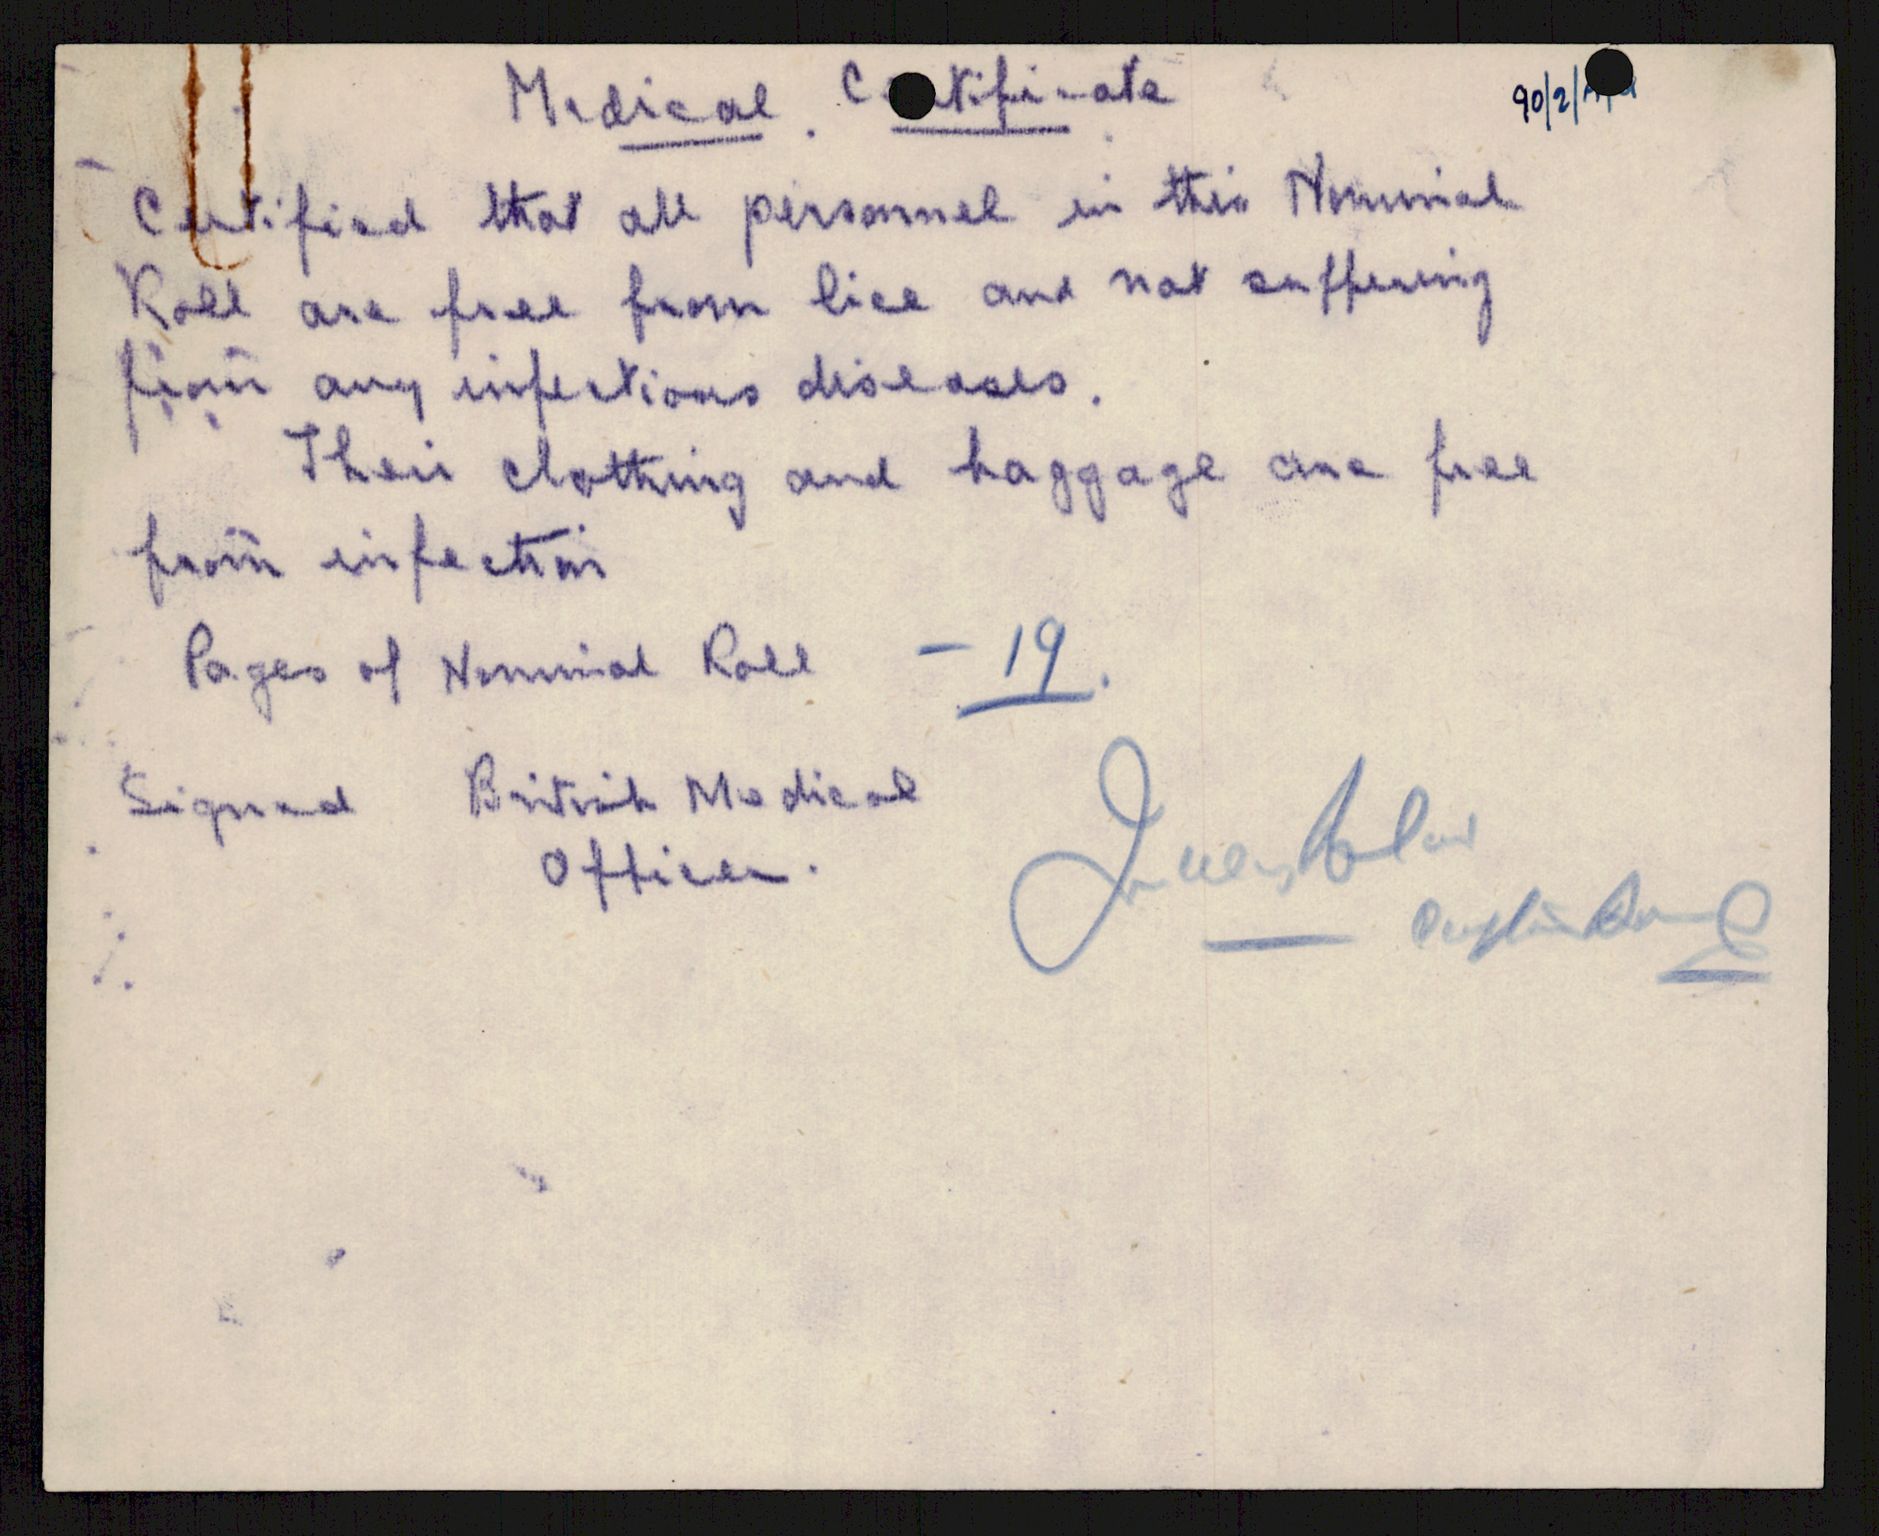 Medical Certificate
90/2/
Certified that all personnel in this Nominal
Roll are free from lice and not suffering
from any infectious diseases.
Their clothing and baggage are free
from infection
Pages of Nominal Roll - 19.
Signed British Medical
Officer.